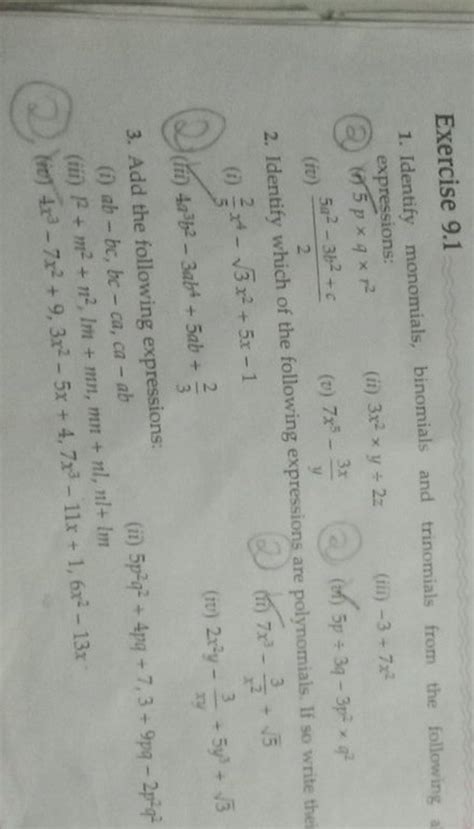 Exercise 9.1
1. Identify monomials, binomials and trinomials from the following
expressions:
② (i) 5 p × q × r² (ii) 3x² × y ÷ 2z (iii) −3 + 7x²
(iv) (5a² − 3b² + c)/2 (v) 7x⁵ − 3x/y ② (vi) 5p ÷ 3q − 3p² × q²
2. Identify which of the following expressions are polynomials. If so write
(i) 2/5 x⁴ − √3 x² + 5x − 1 ② (ii) 7x³ − 3/x² + √5
② (iii) 4a³b² − 3ab⁴ + 5ab + 2/3 (iv) 2x²y − 3/xy + 5y³ + √3
3. Add the following expressions:
(i) ab − bc, bc − ca, ca − ab (ii) 5p²q² + 4pq + 7, 3 + 9pq − 2p²q²
(iii) l² + m² + n², lm + mn, mn + nl, nl + lm
② (iv) 4x³ − 7x² + 9, 3x² − 5x + 4, 7x³ − 11x + 1, 6x² − 13x